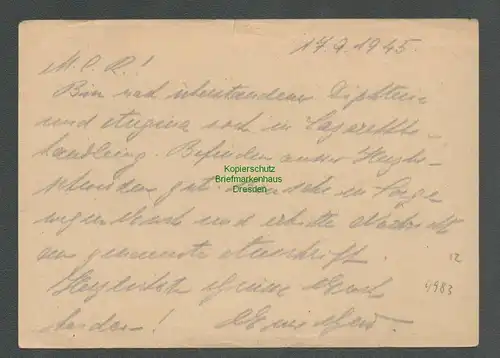 17.9.1945.
M. l. R.!
Bin nach überstandener Diphterie
und Angina noch in Lazarettbe-
handlung. Befinden ausser Herzbe-
schwerden gut. in Sorge
um und erbitte Nachricht
an genannte Anschrift.
Herzlichste Grüsse
Kopierschutz
Briefmarkenhaus
Dresden
12
4983